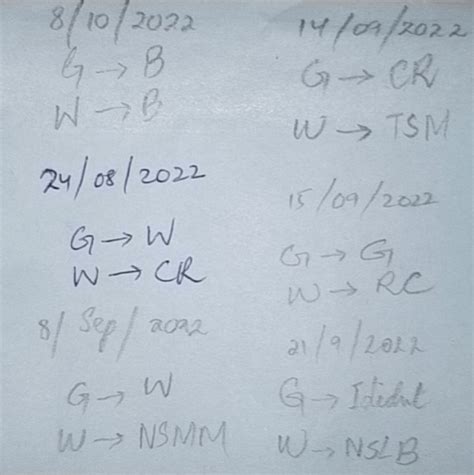 8/10/2022
G → B
W → B
24/08/2022
G → W
W → CR
8/Sep/2022
G → W
W → NSMM
14/09/2022
G → CR
W → TSM
15/09/2022
G → G
W → RC
21/9/2022
G →
W → NSLB